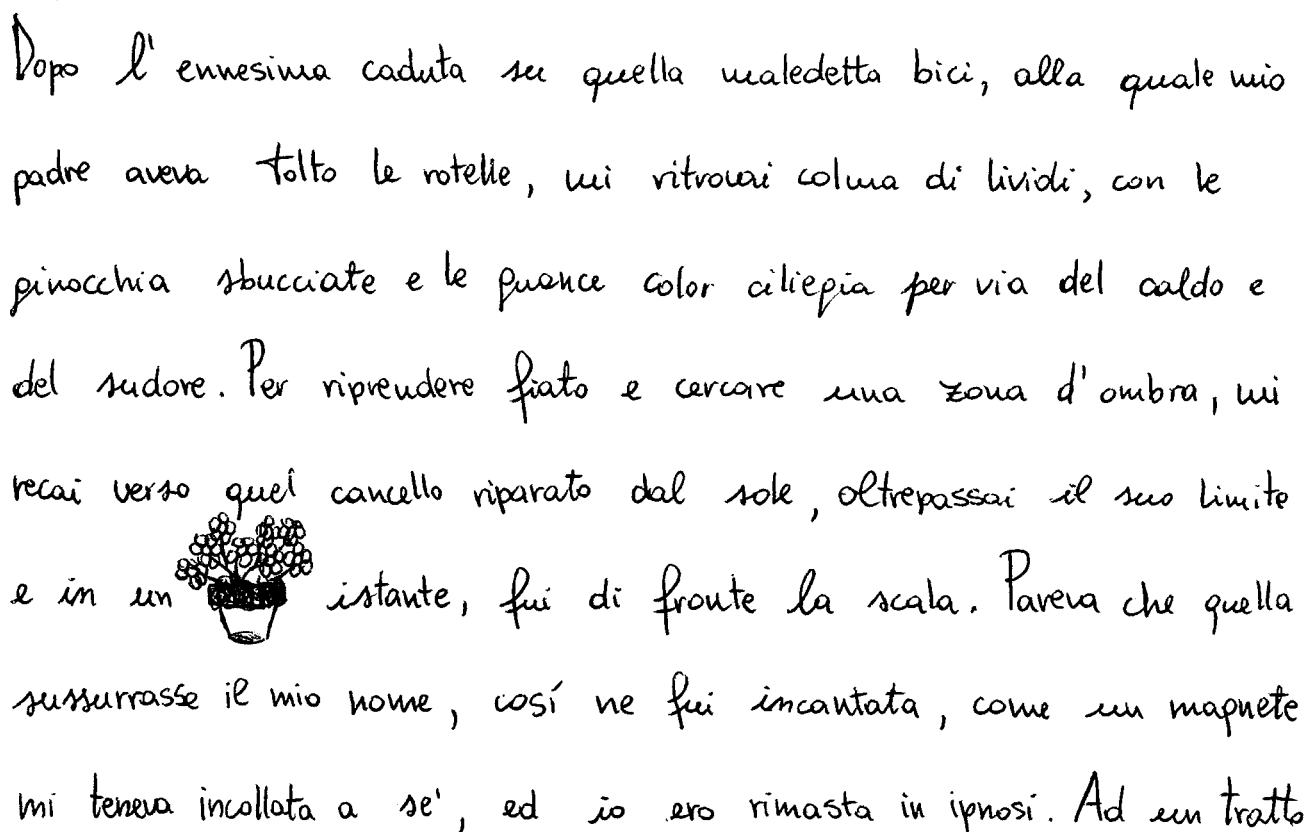 Dopo l'ennesima caduta su quella maledetta bici, alla quale mio
padre aveva tolto le rotelle, mi ritrovai colma di lividi, con le
ginocchia sbucciate e le guance color ciliegia per via del caldo e
del sudore. Per riprendere fiato e cercare una zona d'ombra, mi
recai verso quel cancello riparato dal sole, oltrepassai il suo limite
e in un istante, fui di fronte la scala. Pareva che quella
sussurrasse il mio nome, così ne fui incantata, come un magnete
mi teneva incollata a se', ed io ero rimasta in ipnosi. Ad un tratto